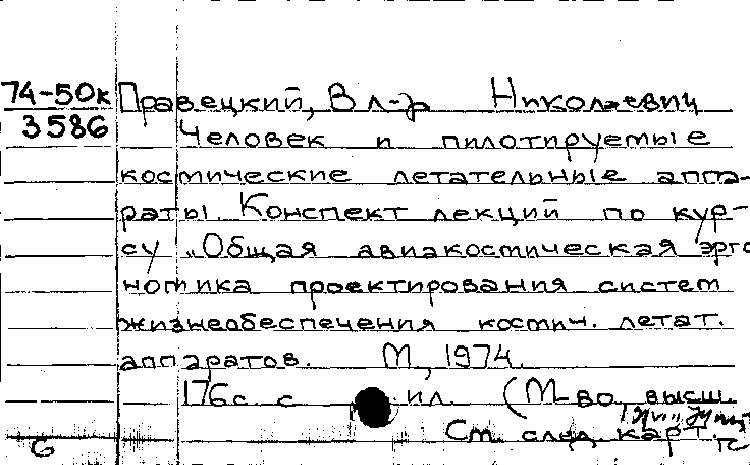 74-50к Правецкий, Вл-р Николаевич
3586 Человек и пилотируемые
космические летательные аппа-
раты. Конспект лекций по кур-
су „Общая авиакосмическая эрго
номика проектирования систем
жизнеобеспечения космич. летат.
аппаратов. М, 1974.
176 с. с ил. (М-во высш.
См. след. карт.